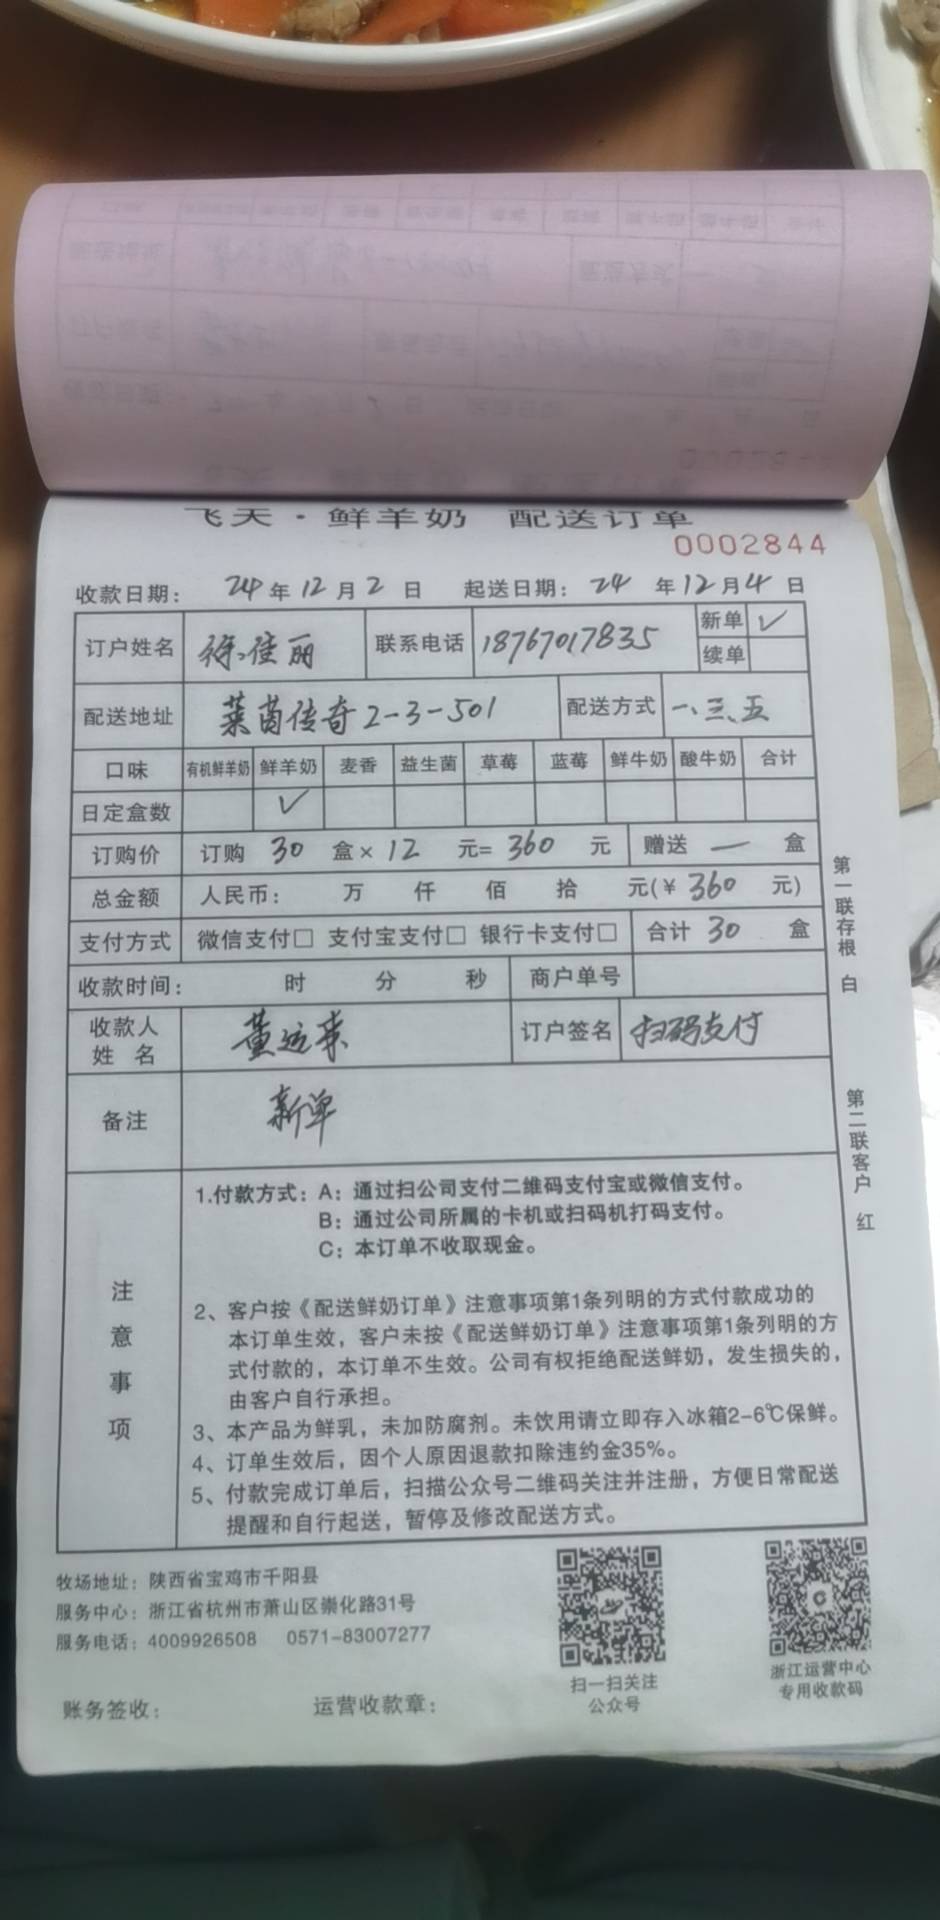 飞天·鲜羊奶 配送订单
0002844
收款日期： 24年12月2日 起送日期： 24年12月4日
订户姓名 徐佳丽 联系电话 18767017835 新单 ✓
续单
配送地址 莱茵传奇2-3-501 配送方式 一、三、五
口味 有机鲜羊奶 鲜羊奶 麦香 益生菌 草莓 蓝莓 鲜牛奶 酸牛奶 合计
日定盒数 ✓
订购价 订购 30 盒× 12 元= 360 元 赠送 — 盒
总金额 人民币： 万 仟 佰 拾 元(¥ 360 元)
支付方式 微信支付□ 支付宝支付□ 银行卡支付□ 合计 30 盒
收款时间： 时 分 秒 商户单号
收款人姓名 董运来 订户签名 扫码支付
备注 新单
第一联存根 白
第二联客户 红
注意事项
1.付款方式：A：通过扫公司支付二维码支付宝或微信支付。
B：通过公司所属的卡机或扫码机打码支付。
C：本订单不收取现金。
2、客户按《配送鲜奶订单》注意事项第1条列明的方式付款成功的
本订单生效，客户未按《配送鲜奶订单》注意事项第1条列明的方
式付款的，本订单不生效。公司有权拒绝配送鲜奶，发生损失的，
由客户自行承担。
3、本产品为鲜乳，未加防腐剂。未饮用请立即存入冰箱2-6℃保鲜。
4、订单生效后，因个人原因退款扣除违约金35%。
5、付款完成订单后，扫描公众号二维码关注并注册，方便日常配送
提醒和自行起送，暂停及修改配送方式。
牧场地址：陕西省宝鸡市千阳县
服务中心：浙江省杭州市萧山区崇化路31号
服务电话：4009926508 0571-83007277
扫一扫关注
公众号
浙江运营中心
专用收款码
账务签收： 运营收款章：